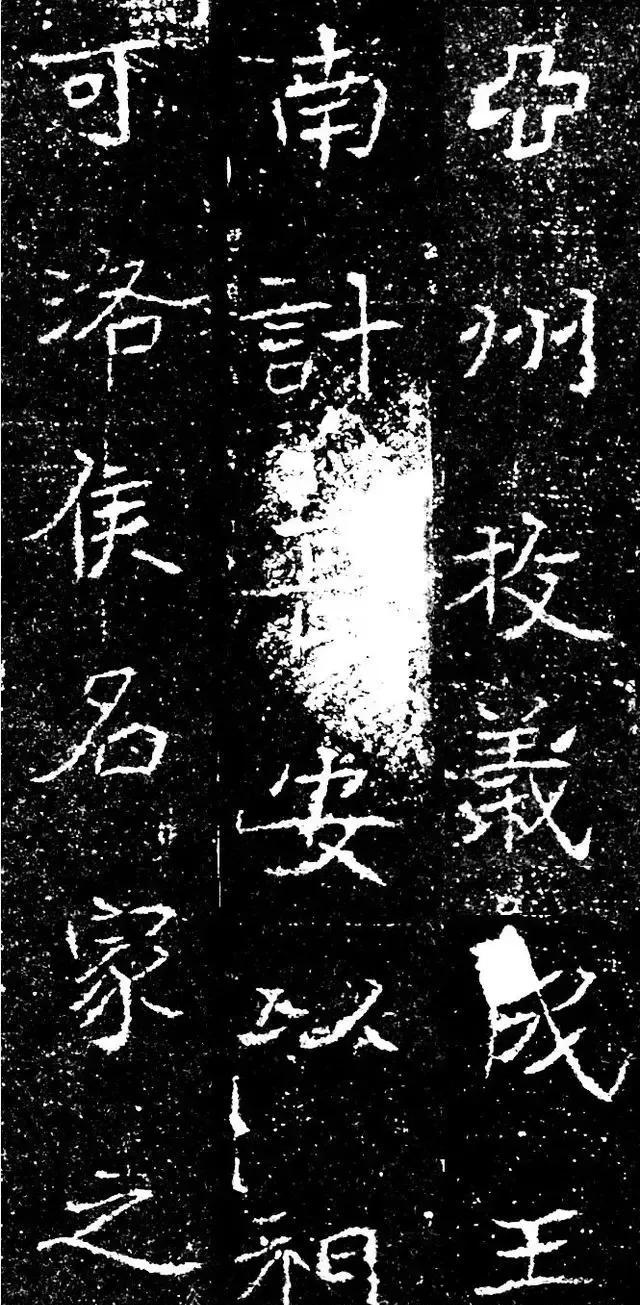 亞州投義成王
南計安以祖
可洛侯名家之